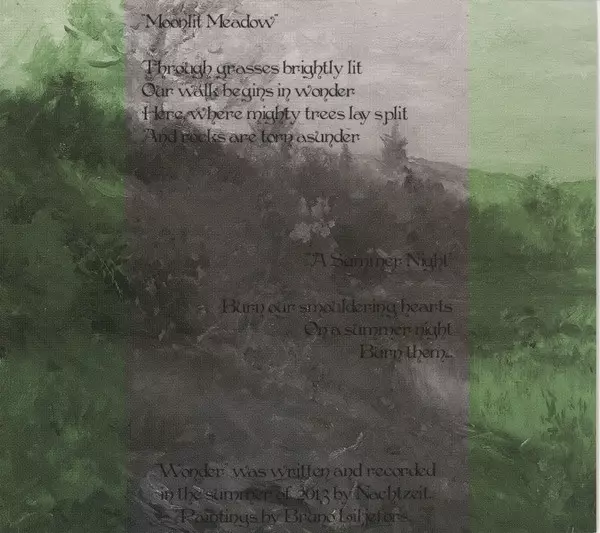 "Moonlit Meadow"
Through grasses brightly lit
Our walk begins in wonder
Here, where mighty trees lay split
And rocks are torn asunder
"A Summer Night"
Burn our smouldering hearts
On a summer night
Burn them...
"Wonder" was written and recorded
in the summer of 2013 by Nachtzeit.
Paintings by Bruno Liljefors.